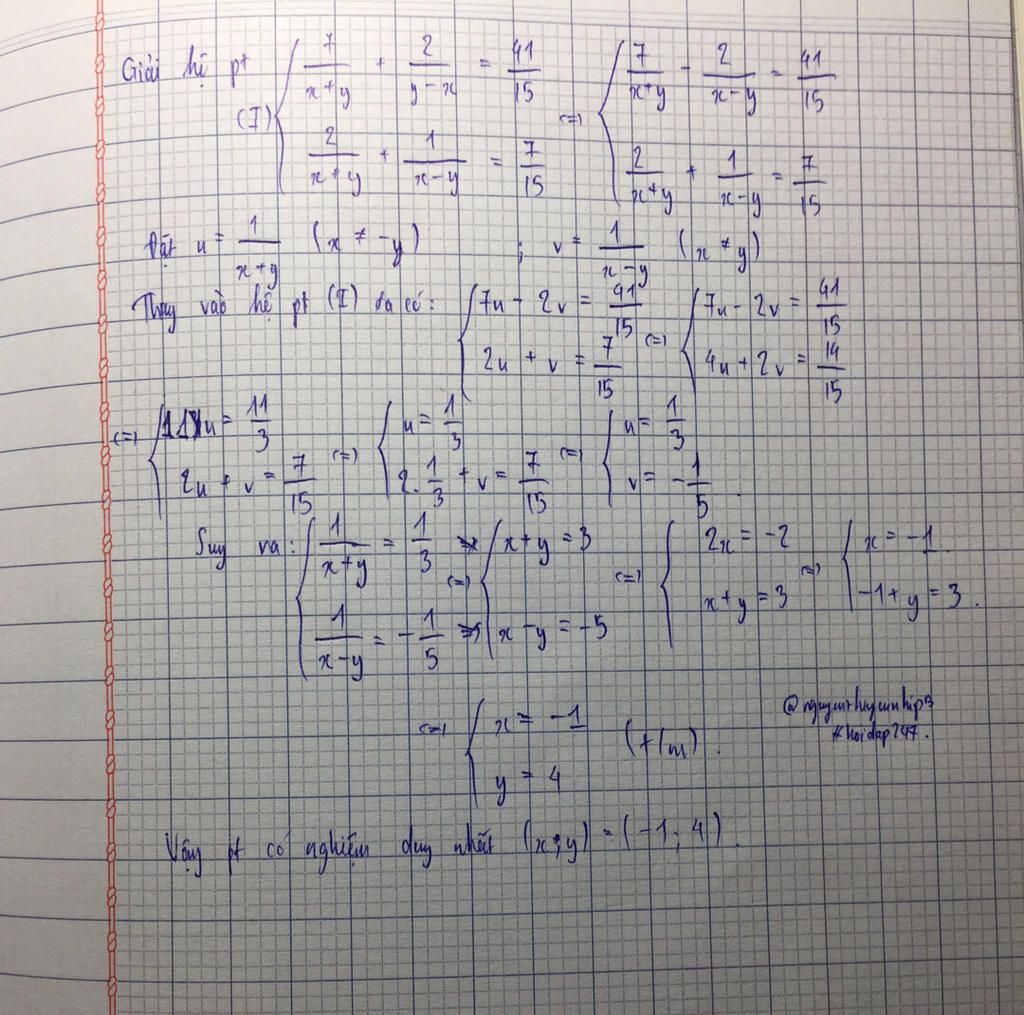 Giải hệ pt (I) { 7/(x+y) + 2/(y-x) = 41/15 ; 2/(x+y) + 1/(x-y) = 7/15 (=) { 7/(x+y) - 2/(x-y) = 41/15 ; 2/(x+y) + 1/(x-y) = 7/15
Đặt u = 1/(x+y) (x ≠ -y) ; v = 1/(x-y) (x ≠ y)
Thay vào hệ pt (I) ta có: { 7u - 2v = 41/15 ; 2u + v = 7/15 (=) { 7u - 2v = 41/15 ; 4u + 2v = 14/15
(=) { 11u = 11/3 ; 2u + v = 7/15 (=) { u = 1/3 ; 2. 1/3 + v = 7/15 (=) { u = 1/3 ; v = -1/5 .
Suy ra: { 1/(x+y) = 1/3 ; 1/(x-y) = -1/5 (=) { x+y = 3 ; x-y = -5 (=) { 2x = -2 ; x+y = 3 (=) { x = -1 . ; -1+y = 3 .
(=) { x = -1 ; y = 4 (t/m) .
#hoidap247.
Vậy pt có nghiệm duy nhất (x;y) = (-1; 4).